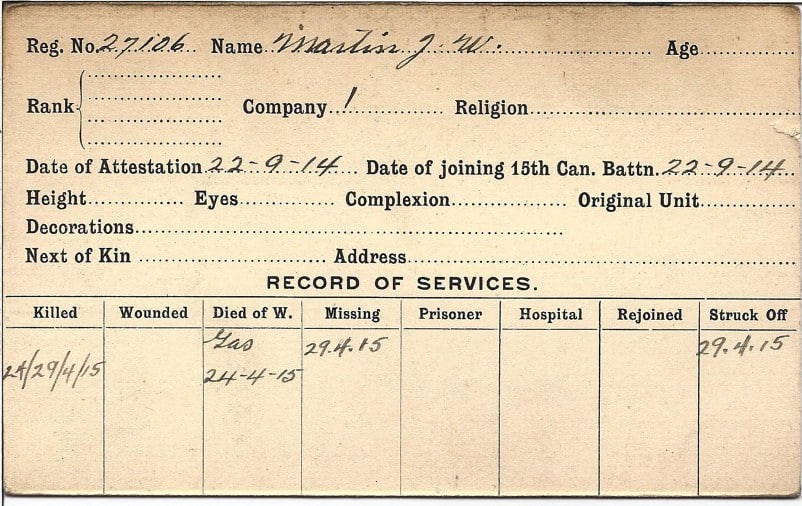 Reg. No. 27106 Name Martin J. W. Age
Rank Company 1 Religion
Date of Attestation 22-9-14 Date of joining 15th Can. Battn. 22-9-14
Height Eyes Complexion Original Unit
Decorations
Next of Kin Address
RECORD OF SERVICES.
Killed Wounded Died of W. Missing Prisoner Hospital Rejoined Struck Off
Gas 29.4.15 29.4.15
24/29/4/15 24-4-15